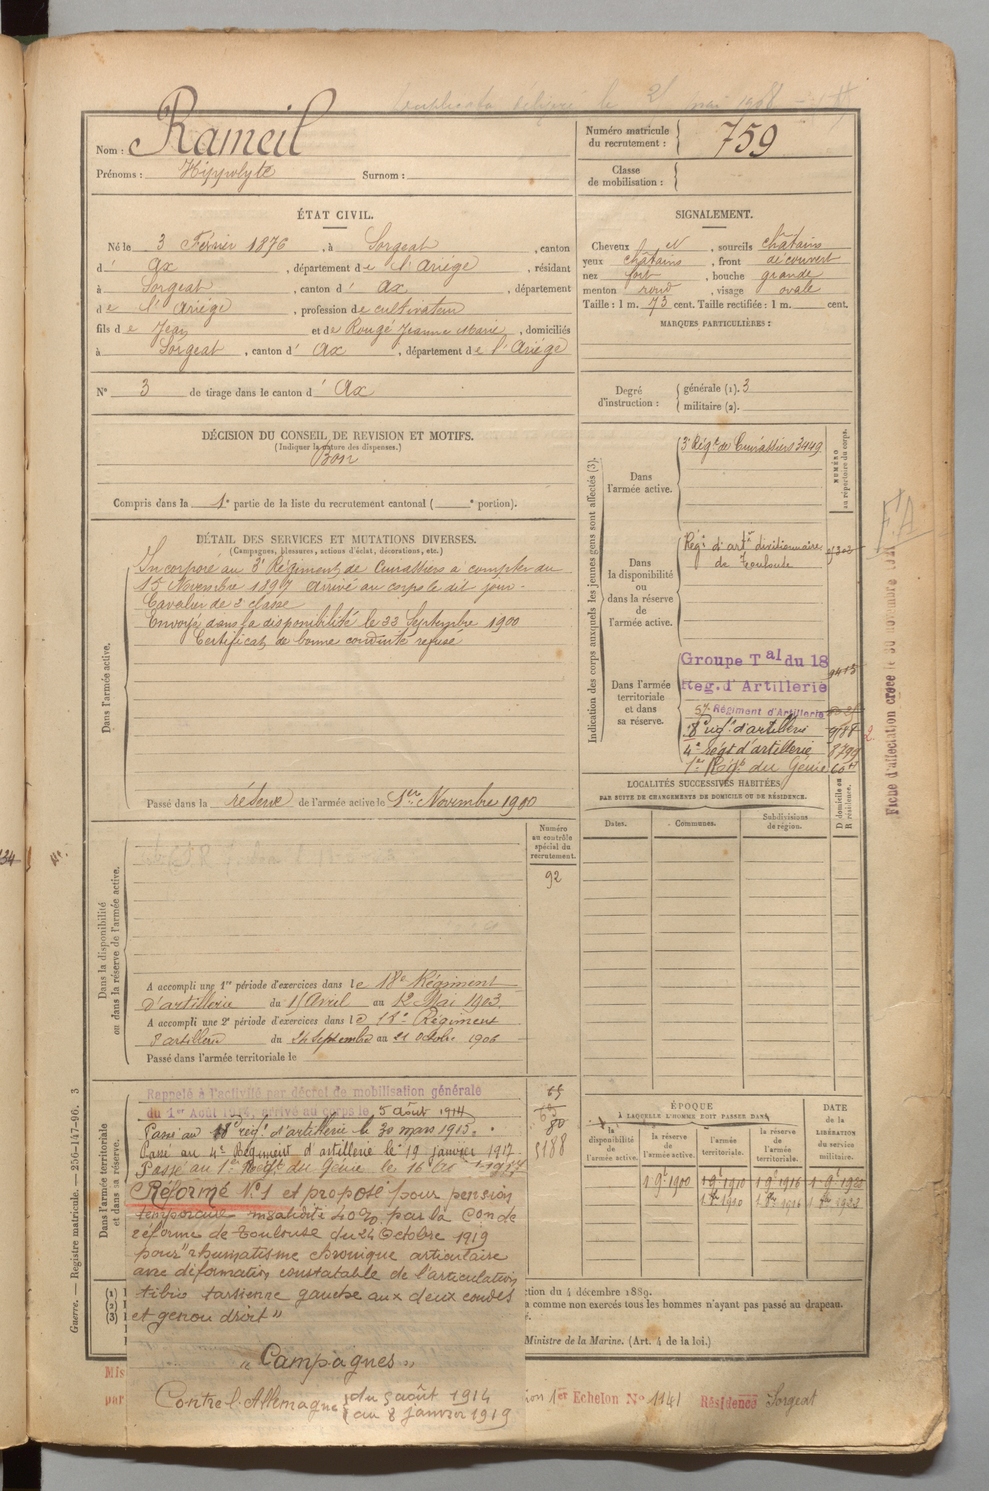 Nom : Rameil
Prénoms : Hippolyte Surnom :
Numéro matricule du recrutement : 759
Classe de mobilisation :
ÉTAT CIVIL.
Né le 3 Février 1876, à Sorgeat, canton
d' Ax, département de l'Ariège, résidant
à Sorgeat, canton d' Ax, département
de l'Ariège, profession de cultivateur
fils de Jean et de Rougé Jeanne Marie, domiciliés
à Sorgeat, canton d' Ax, département de l'Ariège
N° 3 de tirage dans le canton d' Ax
SIGNALEMENT.
Cheveux N, sourcils châtains
yeux châtains, front découvert
nez fort, bouche grande
menton rond, visage ovale
Taille : 1 m. 73 cent. Taille rectifiée : 1 m. cent.
MARQUES PARTICULIÈRES :
Degré d'instruction : générale (1). 3
militaire (2).
DÉCISION DU CONSEIL DE REVISION ET MOTIFS.
(Indiquer la nature des dispenses.)
Bon
Compris dans la 1e partie de la liste du recrutement cantonal ( e portion).
DÉTAIL DES SERVICES ET MUTATIONS DIVERSES.
(Campagnes, blessures, actions d'éclat, décorations, etc.)
Dans l'armée active.
Incorporé au 3e Régiment de Cuirassiers à compter du
15 Novembre 1897 Arrivé au corps le dit jour -
Cavalier de 2e classe
Envoyé dans la disponibilité le 22 Septembre 1900
Certificat de bonne conduite refusé
Passé dans la réserve de l'armée active le 1er Novembre 1900
Indication des corps auxquels les jeunes gens sont affectés (3).
NUMÉRO au répertoire du corps.
Dans l'armée active.
3e Régt de Cuirassiers 3449
Dans la disponibilité ou dans la réserve de l'armée active.
Régt d'artie divisionnaire
de Toulouse
Dans l'armée territoriale et dans sa réserve.
Groupe Tal du 18
Reg. d'Artillerie
57e Régiment d'Artillerie
18e régt d'artillerie
4e Régt d'artillerie 8799
1er Régt du Génie
Fiche d'affectation créée le 30 novembre
F.A
LOCALITÉS SUCCESSIVES HABITÉES
PAR SUITE DE CHANGEMENTS DE DOMICILE OU DE RÉSIDENCE.
Dates. Communes. Subdivisions de région. D domicile ou R résidence.
Dans la disponibilité ou dans la réserve de l'armée active.
Numéro au contrôle spécial du recrutement.
92
A accompli une 1re période d'exercices dans le 18e Régiment
d'artillerie du 15 Avril au 12 Mai 1903.
A accompli une 2e période d'exercices dans le 18e Régiment
d'artillerie du 24 Septembre au 21 Octobre 1906
Passé dans l'armée territoriale le
Dans l'armée territoriale et dans sa réserve.
Rappelé à l'activité par décret de mobilisation générale
du 1er Août 1914, arrivé au corps le 5 août 1914
Passé au 18e régt d'artillerie le 30 mars 1915.
Passé au 4e Régiment d'artillerie le 19 janvier 1917
Passé au 1er Régt du Génie le 16
Réformé N°1 et proposé pour pension
temporaire invalidité 40% par la Con de
réforme de Toulouse du 24 Octobre 1919
pour "rhumatisme chronique articulaire
avec déformation constatable de l'articulation
tibio tarsienne gauche aux deux coudes
et genou droit"
"Campagnes"
Contre l'Allemagne du 5 août 1914
au 8 janvier 1919
5188
ÉPOQUE
À LAQUELLE L'HOMME DOIT PASSER DANS
la disponibilité de l'armée active. la réserve de l'armée active. l'armée territoriale. la réserve de l'armée territoriale.
DATE de la LIBÉRATION du service militaire.
1 9e 1900 1 9e 1910 1 9e 1916 1 9e 1922
ction du 4 décembre 1889.
a comme non exercés tous les hommes n'ayant pas passé au drapeau.
Ministre de la Marine. (Art. 4 de la loi.)
Mis
par
ion 1er Echelon N° 1141 Résidence Sorgeat
Guerre. — Registre matricule. — 256-147-96. 3